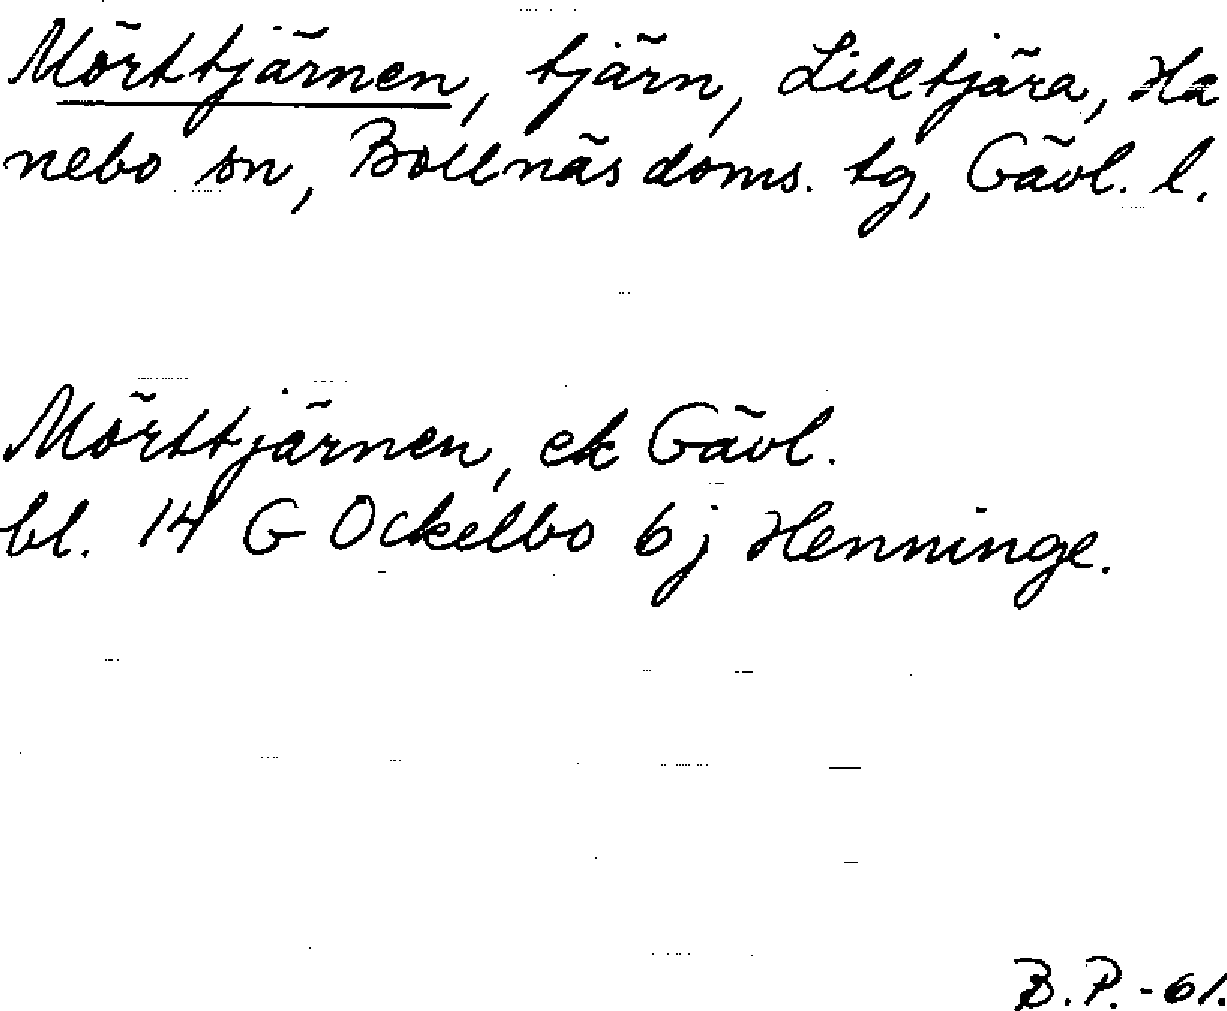 Mörttjärnen, tjärn, Lilltjära, Ha
nebo sn, Bollnäs doms. tg, Gävl. l.
Mörttjärnen, ek Gävl.
bl. 14 G Ockelbo 6 j Henninge.
B.P.-61.